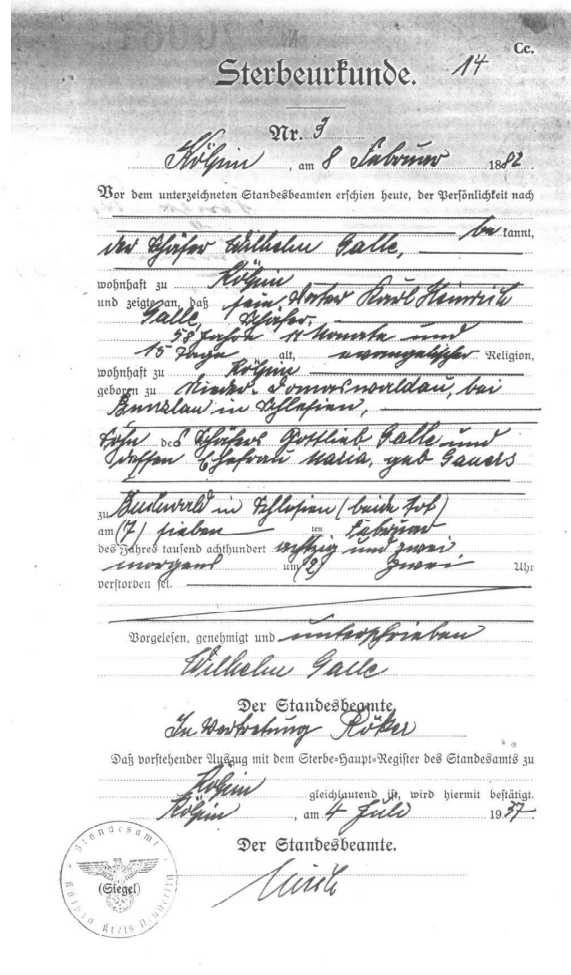 Cc.
Sterbeurkunde. 14
Nr. 3
Kölpin, am 8 Februar 1882.
Vor dem unterzeichneten Standesbeamten erschien heute, der Persönlichkeit nach
bekannt,
der Schäfer Wilhelm Galle,
wohnhaft zu Kölpin
und zeigte an, daß sein Vater Karl Heinrich
Galle, Schäfer,
58 Jahre 11 Monate und
15 Tage alt, evangelischer Religion,
wohnhaft zu Kölpin
geboren zu Nieder-Tomaswaldau, bei
Bunzlau in Schlesien,
Sohn des Schäfers Gottlieb Galle und
dessen Ehefrau Maria, geb Gauers
zu Buchwald in Schlesien (beide tot)
am (7) sieben ten Februar
des Jahres tausend achthundert achtzig und zwei
morgens um (2) zwei Uhr
verstorben sei.
Vorgelesen, genehmigt und unterschrieben
Wilhelm Galle
Der Standesbeamte,
In Vertretung Röker
Daß vorstehender Auszug mit dem Sterbe-Haupt-Register des Standesamts zu
Kölpin
gleichlautend ist, wird hiermit bestätigt.
Kölpin, am 4 Juli 1937.
Der Standesbeamte.
(Siegel)
Standesamt
Kölpin Kreis